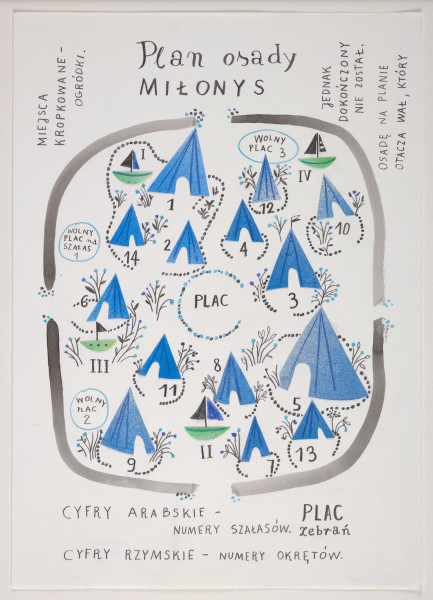 Plan osady
MIŁONYS
MIEJSCA
KROPKOWANE -
OGRÓDKI.
OSADĘ NA PLANIE
OTACZA WAŁ, KTÓRY
JEDNAK
DOKOŃCZONY
NIE ZOSTAŁ.
I
WOLNY
PLAC 3
IV
1
12
10
WOLNY
PLAC na
SZAŁAS
1
14
2
4
6
PLAC
3
III
11
8
5
WOLNY
PLAC
2
9
II
7
13
CYFRY ARABSKIE -
NUMERY SZAŁASÓW.
PLAC
zebrań
CYFRY RZYMSKIE - NUMERY OKRĘTÓW.